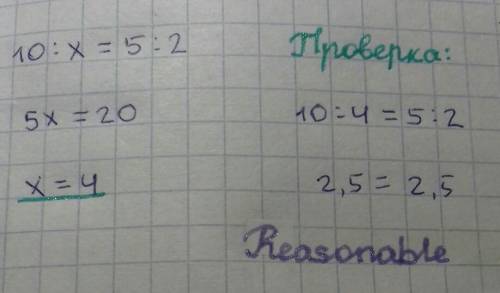 10 : x = 5 : 2
5x = 20
x = 4
Проверка:
10 : 4 = 5 : 2
2,5 = 2,5
Reasonable